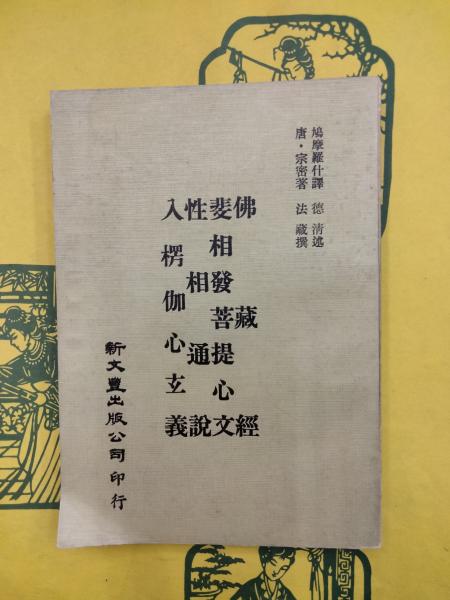 鳩摩羅什譯 德清述
唐·宗密著 法藏撰
佛藏經
斐相發菩提心文
性相通說
入楞伽心玄義
新文豐出版公司印行